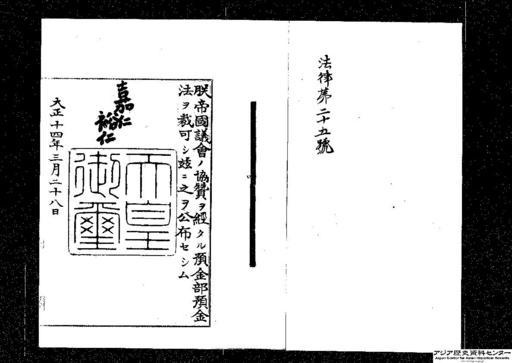 法律第二十五號
朕帝國議會ノ協贊ヲ經タル預金部預金
法ヲ裁可シ玆ニ之ヲ公布セシム
嘉仁
裕仁
天皇
御璽
大正十四年三月二十八日
アジア歴史資料センター
Japan Center for Asian Historical Records